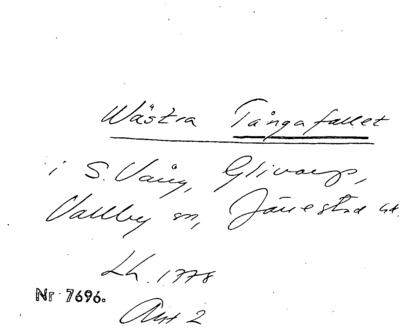 Wästra Tångafallet
i S. Vång, Glivarp,
Vallby sn, Järrestad hd.
Lh. 1778
Nr 7696.
Akt 2